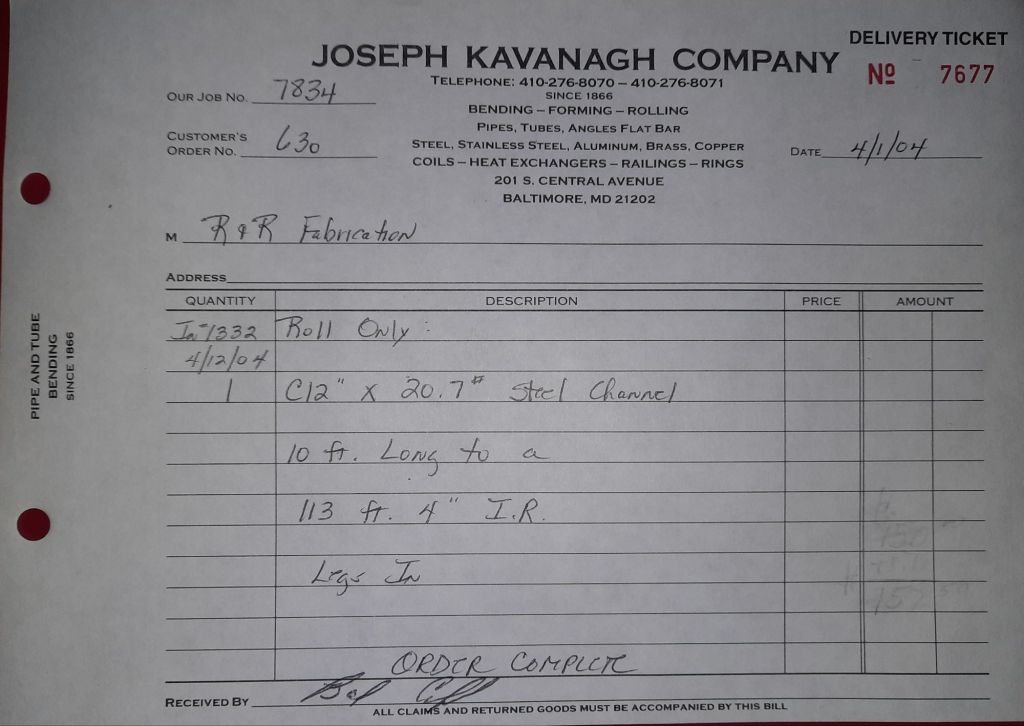 DELIVERY TICKET
JOSEPH KAVANAGH COMPANY
Nº 7677
TELEPHONE: 410-276-8070 – 410-276-8071
SINCE 1866
OUR JOB NO. 7834
BENDING – FORMING – ROLLING
PIPES, TUBES, ANGLES FLAT BAR
CUSTOMER'S
ORDER NO. 630
STEEL, STAINLESS STEEL, ALUMINUM, BRASS, COPPER
DATE 4/1/04
COILS – HEAT EXCHANGERS – RAILINGS – RINGS
201 S. CENTRAL AVENUE
BALTIMORE, MD 21202
M R & R Fabrication
ADDRESS
QUANTITY DESCRIPTION PRICE AMOUNT
In-1332 Roll Only:
4/12/04
1 C12" X 20.7# Steel Channel
10 ft. Long to a
113 ft. 4" I.R.
Legs In
ORDER COMPLETE
RECEIVED BY
ALL CLAIMS AND RETURNED GOODS MUST BE ACCOMPANIED BY THIS BILL
PIPE AND TUBE
BENDING
SINCE 1866